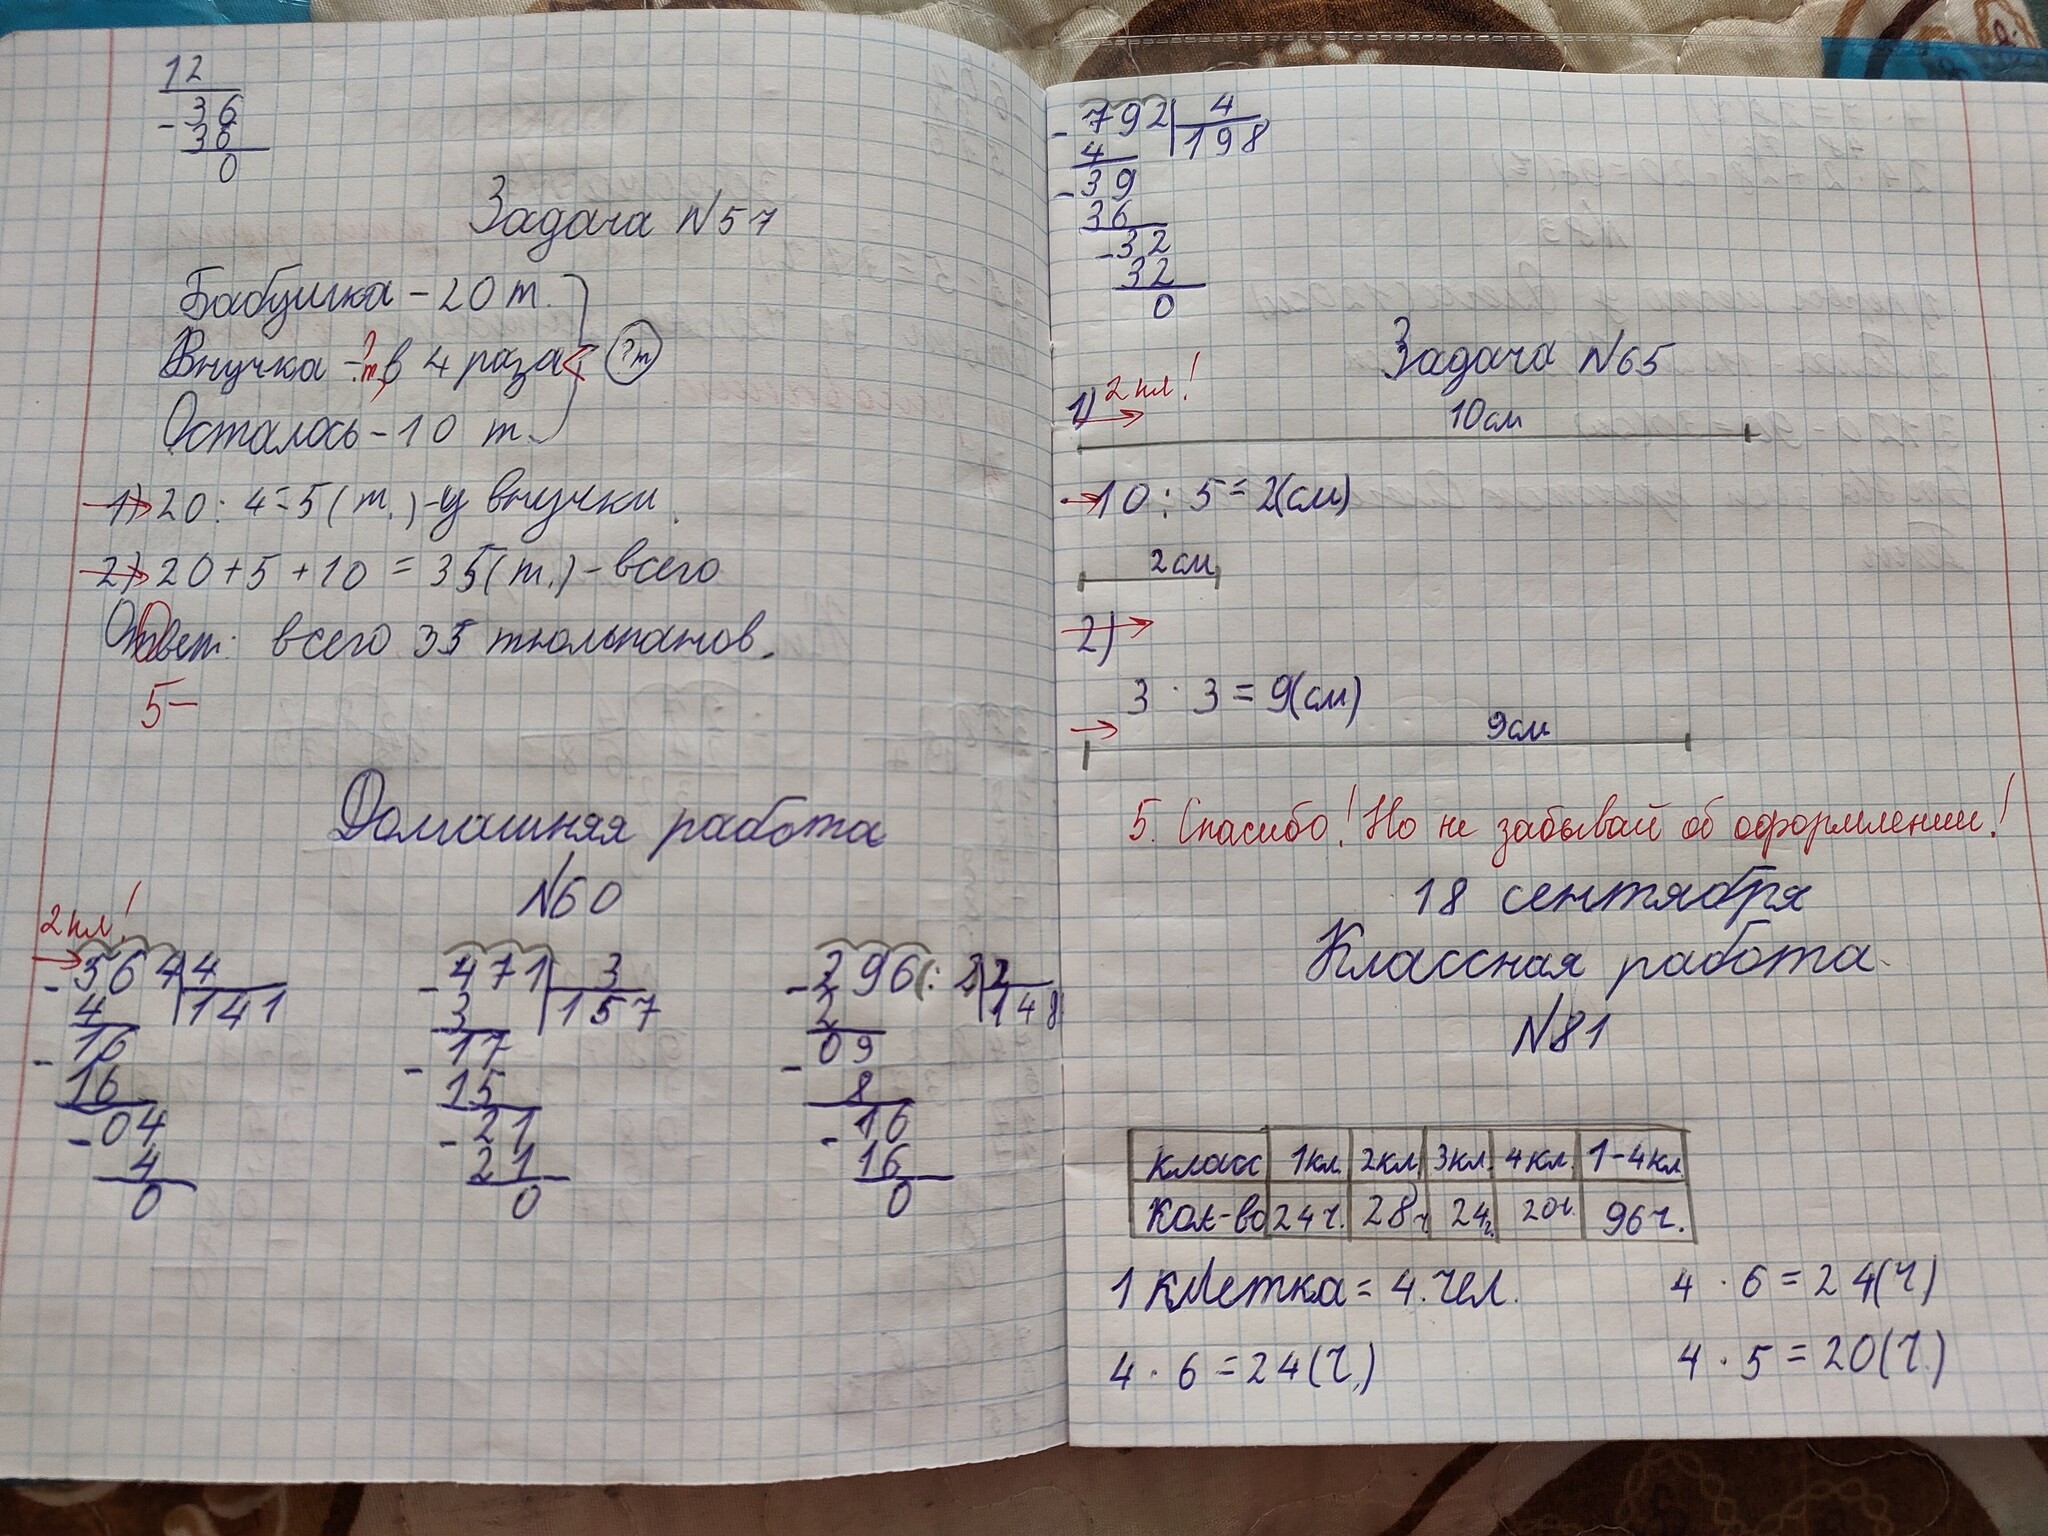 12
- 36
36
0
Задача №57
Бабушка - 20 т.
Внучка - ? т., в 4 раза < ? т
Осталось - 10 т.
1) 20 : 4 = 5 (т.) - у внучки.
2) 20 + 5 + 10 = 35 (т.) - всего
Ответ: всего 35 тюльпанов.
5-
Домашняя работа
№60
2 кл!
- 564 | 4
4 | 141
- 16
16
- 04
4
0
- 471 | 3
3 | 157
- 17
15
- 21
21
0
- 296 (: 2 | 2
2 | 148
- 09
8
- 16
16
0
- 792 | 4
4 | 198
- 39
36
- 32
32
0
Задача №65
2 кл!
1)
10 см
10 : 5 = 2 (см)
2 см
2)
3 · 3 = 9 (см)
9 см
5. Спасибо! Но не забывай об оформлении!
18 сентября
Классная работа
№81
класс 1кл. 2кл. 3кл. 4кл. 1-4кл
Кол-во 24ч. 28ч 24ч. 20ч. 96ч.
1 клетка = 4.чел. 4 · 6 = 24 (ч)
4 · 6 = 24 (ч.) 4 · 5 = 20 (ч.)